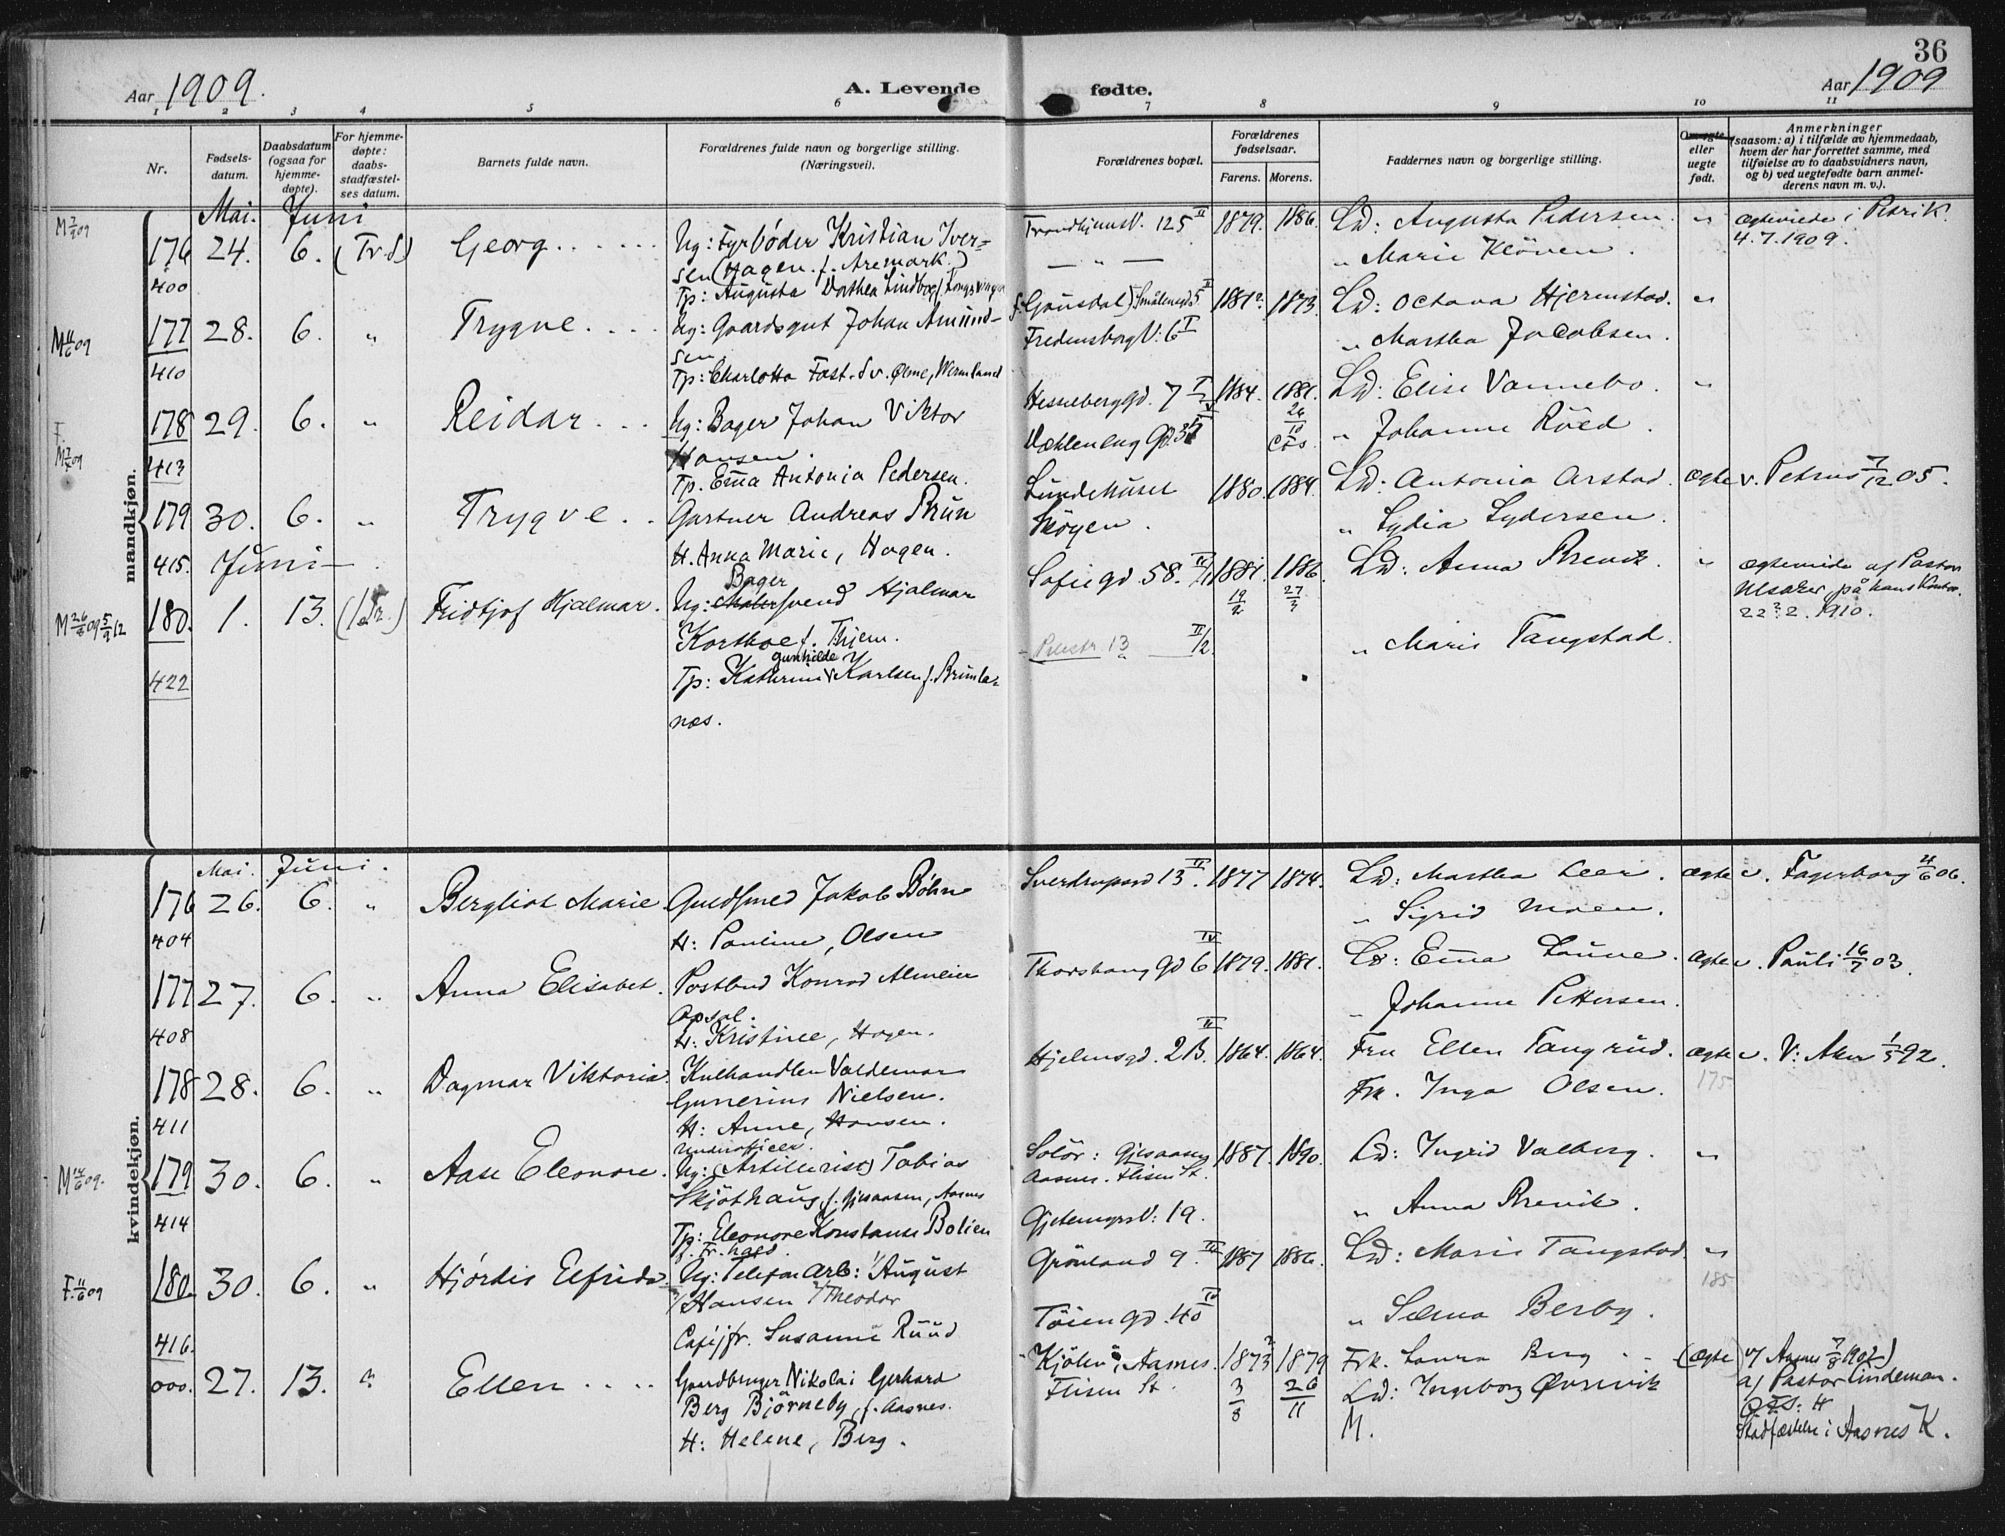 36
Aar 1909.
A. Levende
fødte.
Aar 1909
1 2 3 4 5 6 7 8 9 10 11
Nr.
Fødsels-
datum.
Daabsdatum
(ogsaa for
hjemme-
døpte).
For hjemme-
døpte:
daabs-
stadfæstel-
ses datum.
Barnets fulde navn.
Forældrenes fulde navn og borgerlige stilling.
(Næringsvei).
Forældrenes bopæl.
Forældrenes
fødselsaar.
Farens. Morens.
Faddernes navn og borgerlige stilling.
Om egte
eller
uegte
født.
Anmerkninger
(saasom: a) i tilfælde av hjemmedaab,
hvem der har forrettet samme, med
tilføielse av to daabsvidners navn,
og b) ved uegtefødte barn anmel-
derens navn m. v.).
mandkjøn.
Mai. Juni
176 24. 6. Georg
Ug: Fyrbøder Kristian Iver-
sen (Hagen. f. Aremark.)
Tp: Augusta Dorthea Lindbo
TrondhjemsV. 125 II 1879. 1886.
Ld: Augusta Pedersen.
" Marie Kløven.
4.7.1909.
400
177 28. 6. " Trygve
Ug: Gaardsgut Johan Amund-
sen
Tp: Charlotta Fast. Sv. Ølme, Wermland
1873.
FredensborgV: 6 I
Ld: Octava Hjermstad.
" Martha Jacobsen.
410
178 29. 6. " Reidar
Ug: Bager Johan Viktor
Hansen.
Tp. Emma Antonia Pedersen.
Hesseberggd. 7 1884. 1881.
Vahleneng gd.
Ld: Elise Vannebo.
" Johanne Röed.
413
179 30. 6. " Trygve
Gartner Andreas Bruun
H. Anna Marie, Hagen.
Lundehuset
Skøyen.
1880. 1884.
Ld: Antonia Arstad.
" Lydia Sydersen.
ægte v. Petrus 7/12 05.
415.
Juni
180. 1. 13. Fridtjof Hjalmar.
Bager
Svend Hjalmar
f. Thjem.
gunhilde
Tp: Kathrine Karlsen f. Brunla-
næs.
Sofiegd 58. 1881. 1886
19/2 27/3
Ld: Anna Brevik
" Marie Tangstad.
ægteviede af Pastor
på hans Kontor.
1910.
422
kvindekjøn.
Mai. Juni.
176 26. 6. " Bergliot Marie
Guldsmed Jakob Bøhn
H: Pauline, Olsen
Sverdrupsgd 13 II. 1877 1874.
Ld: Martha Leer.
" Sigrid Moen.
ægte v. Fagerborg 4/6 06.
404
177 27. 6. " Anna Elisabet.
Postbud Konrad Almeier
Opsal.
H: Kristine, Hagen.
Thorshaug gd 6 IV 1879. 1881.
Ld: Emma Laune.
" Johanne Pettersen.
ægte v. Pauli 16/7 03.
408
178 28. 6. " Dagmar Viktoria.
Kulhandler Valdemar
Gunerius Nielsen.
H: Anne, Hansen.
Hjelmsgd. 2B. II 1864. 1864.
Fru Ellen Tangrud.
Frk. Inga Olsen.
ægte v. V: Aker 1/5 92.
175
411
179 30. 6. " Aase Eleonore.
Underofficer.
Ug: (Artillerist) Tobias
Skjøthaug, f. Gjesaasen, Aasnes
Tp: Eleonore Konstance Bolien
f. Fr.hald.
Solör: Gjesaasen
Aasnes. Flisen St.
GjetemyrsV: 19.
1887. 1890.
Ld: Ingrid Valberg.
" Anna Brevik.
414
180. 30. 6. " Hjørdis Elfrida
Ug: Telefonarb: August
Hansen Theodor
Caféjfr. Susanne Ruud
Grønland 9. 1887 1886.
Tøiengd. 40 IV
Ld: Marie Tangstad.
" Selma Berby.
185
416.
000. 27. 13. Ellen
Gaardbruger Nikolai Gerhard
Berg Bjørneby, f. Aasnes.
H: Helene, Berg.
"Kjølen", Aasnes.
Flisen St.
1873 1879
3/8 26/11
Frk. Laura Berg
Ld: Ingeborg Øvrevik
M.
(ægte v/ Aasnes 7/8 1902)
a/ Pastor Lindeman.
Stadfæstelse i Aasnes K.